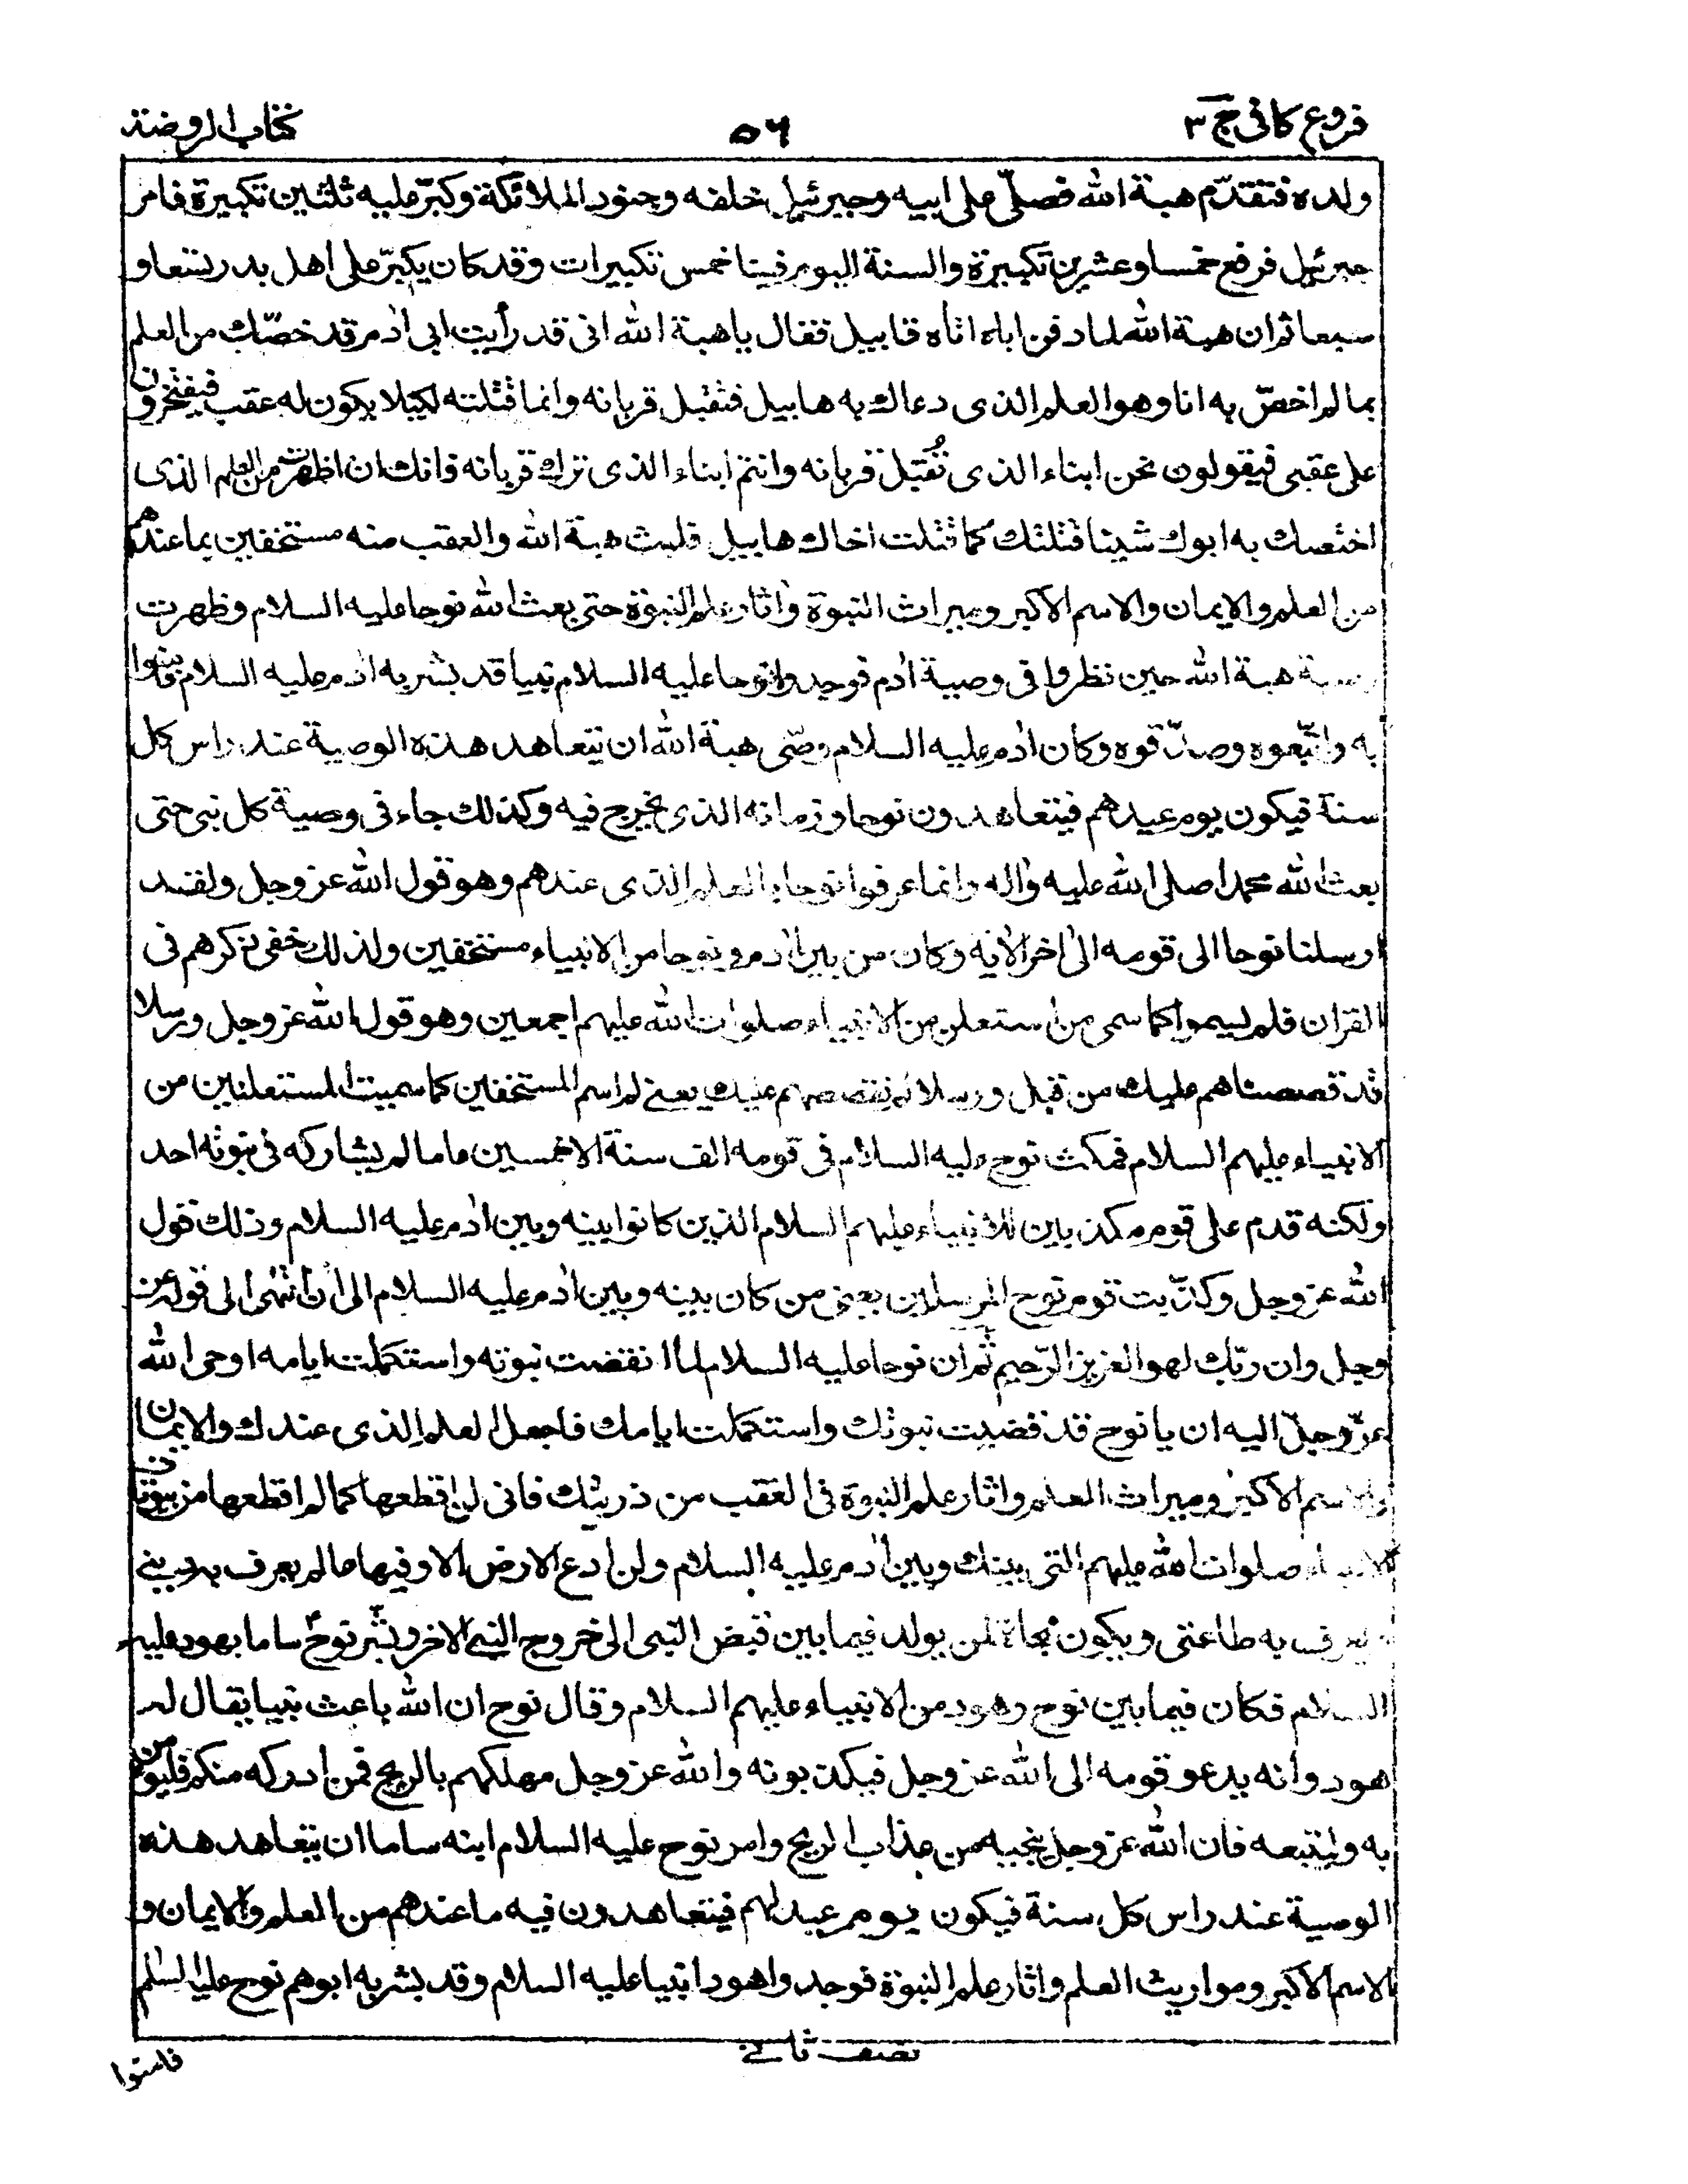 فروع كافى ج ٣
٥٦
كتاب الروضة
ولده فتقدّم هبة الله فصلّى على ابيه وجبرئيل خلفه وجنود الملائكة وكبّر عليه ثلثين تكبيرة فامر
جبرئيل فرفع خمسا وعشرين تكبيرة والسنة اليوم فينا خمس تكبيرات وقد كان يكبّر على اهل بدر تسعا و
سبعا ثم ان هبة الله لما دفن اباه اتاه قابيل فقال يا هبة الله انى قد رأيت ابى ادم قد خصّك من العلم
بما لم اخصّ به انا وهو العلم الذى دعا به هابيل فتقبل قربانه وانما قتلته لكيلا يكون له عقب فيفتخرون
على عقبى فيقولون نحن ابناء الذى تُقبّل قربانه وانتم ابناء الذى ترك قربانه فانك ان اظهرت من العلم الذى
اختصك به ابوك شيئا قتلتك كما قتلت اخاك هابيل فلبث هبة الله والعقب منه مستخفين بما عندهم
من العلم والايمان والاسم الاكبر وميراث النبوة واثار علم النبوة حتى بعث الله نوحا عليه السلام وظهرت
وصية هبة الله حين نظروا فى وصية ادم فوجدوا نوحا عليه السلام نبيا قد بشر به ادم عليه السلام فامنوا
به واتّبعوه وصدّقوه وكان ادم عليه السلام وصّى هبة الله ان يتعاهد هذه الوصية عند راس كل
سنة فيكون يوم عيدهم فيتعاهدون نوحا وزمانه الذى يخرج فيه وكذلك جاء فى وصية كل نبى حتى
بعث الله محمدا صلى الله عليه واله وانما عرفوا نوحا بالعلم الذى عندهم وهو قول الله عز وجل ولقد
ارسلنا نوحا الى قومه الى اخر الاية وكان من بين ادم ونوحا من الانبياء مستخفين ولذلك خفى ذكرهم فى
القران فلم يسموا كما سمى من استعلن من الانبياء صلوات الله عليهم اجمعين وهو قول الله عز وجل ورسلا
قد قصصناهم عليك من قبل ورسلا لم نقصصهم عليك يعنى لم اسم المستخفين كما سميت المستعلنين من
الانبياء عليهم السلام فمكث نوح عليه السلام فى قومه الف سنة الا خمسين عاما لم يشاركه فى نبوته احد
ولكنه قدم على قوم مكذبين للانبياء عليهم السلام الذين كانوا بينه وبين ادم عليه السلام وذلك قول
الله عز وجل وكذّبت قوم نوح المرسلين يعنى من كان بينه وبين ادم عليه السلام الى ان انتهى الى قوله عز
وجل وان ربّك لهو العزيز الرّحيم ثم ان نوحا عليه السلام لما انقضت نبوته واستكملت ايامه اوحى الله
عزّ وجلّ اليه ان يا نوح قد قضيت نبوتك واستكملت ايامك فاجعل العلم الذى عندك والايمان
والاسم الاكبر وميراث العلم واثار علم النبوة فى العقب من ذريتك فانى لن اقطعها كما لم اقطعها من بيوتات
الانبياء صلوات الله عليهم التى بينك وبين ادم عليه السلام ولن ادع الارض الا وفيها عالم يعرف به دينى
و يعرف به طاعتى ويكون نجاة لمن يولد فيما بين قبض النبى الى خروج النبى الاخر وبشّر نوح ساما بهود عليه
السلام فكان فيما بين نوح وهود من الانبياء عليهم السلام وقال نوح ان الله باعث نبيا يقال له
هود وانه يدعو قومه الى الله عز وجل فيكذبونه والله عز وجل مهلكهم بالريح فمن ادركه منكم فليؤمن
به وليتبعه فان الله عز وجل ينجيه من عذاب الريح وامر نوح عليه السلام ابنه ساما ان يتعاهد هذه
الوصية عند راس كل سنة فيكون يوم عيد لهم فيتعاهدون فيه ما عندهم من العلم والايمان و
الاسم الاكبر ومواريث العلم واثار علم النبوة فوجدوا هودا نبيا عليه السلام وقد بشر به ابوهم نوح عليه السلم
نصف ثانى
فامنوا